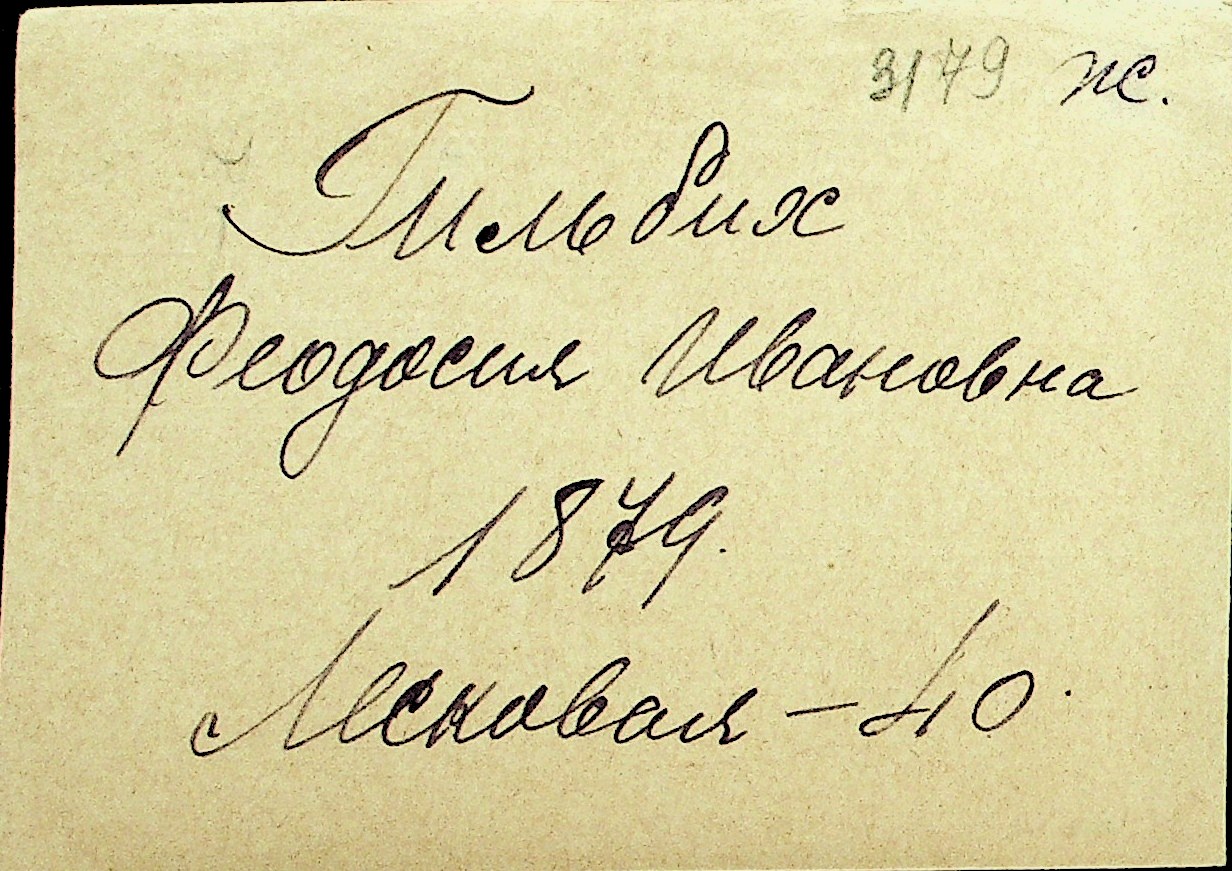 3179 ж.
Гильбих
Феодосия Ивановна
1879.
Лесковая - 40.